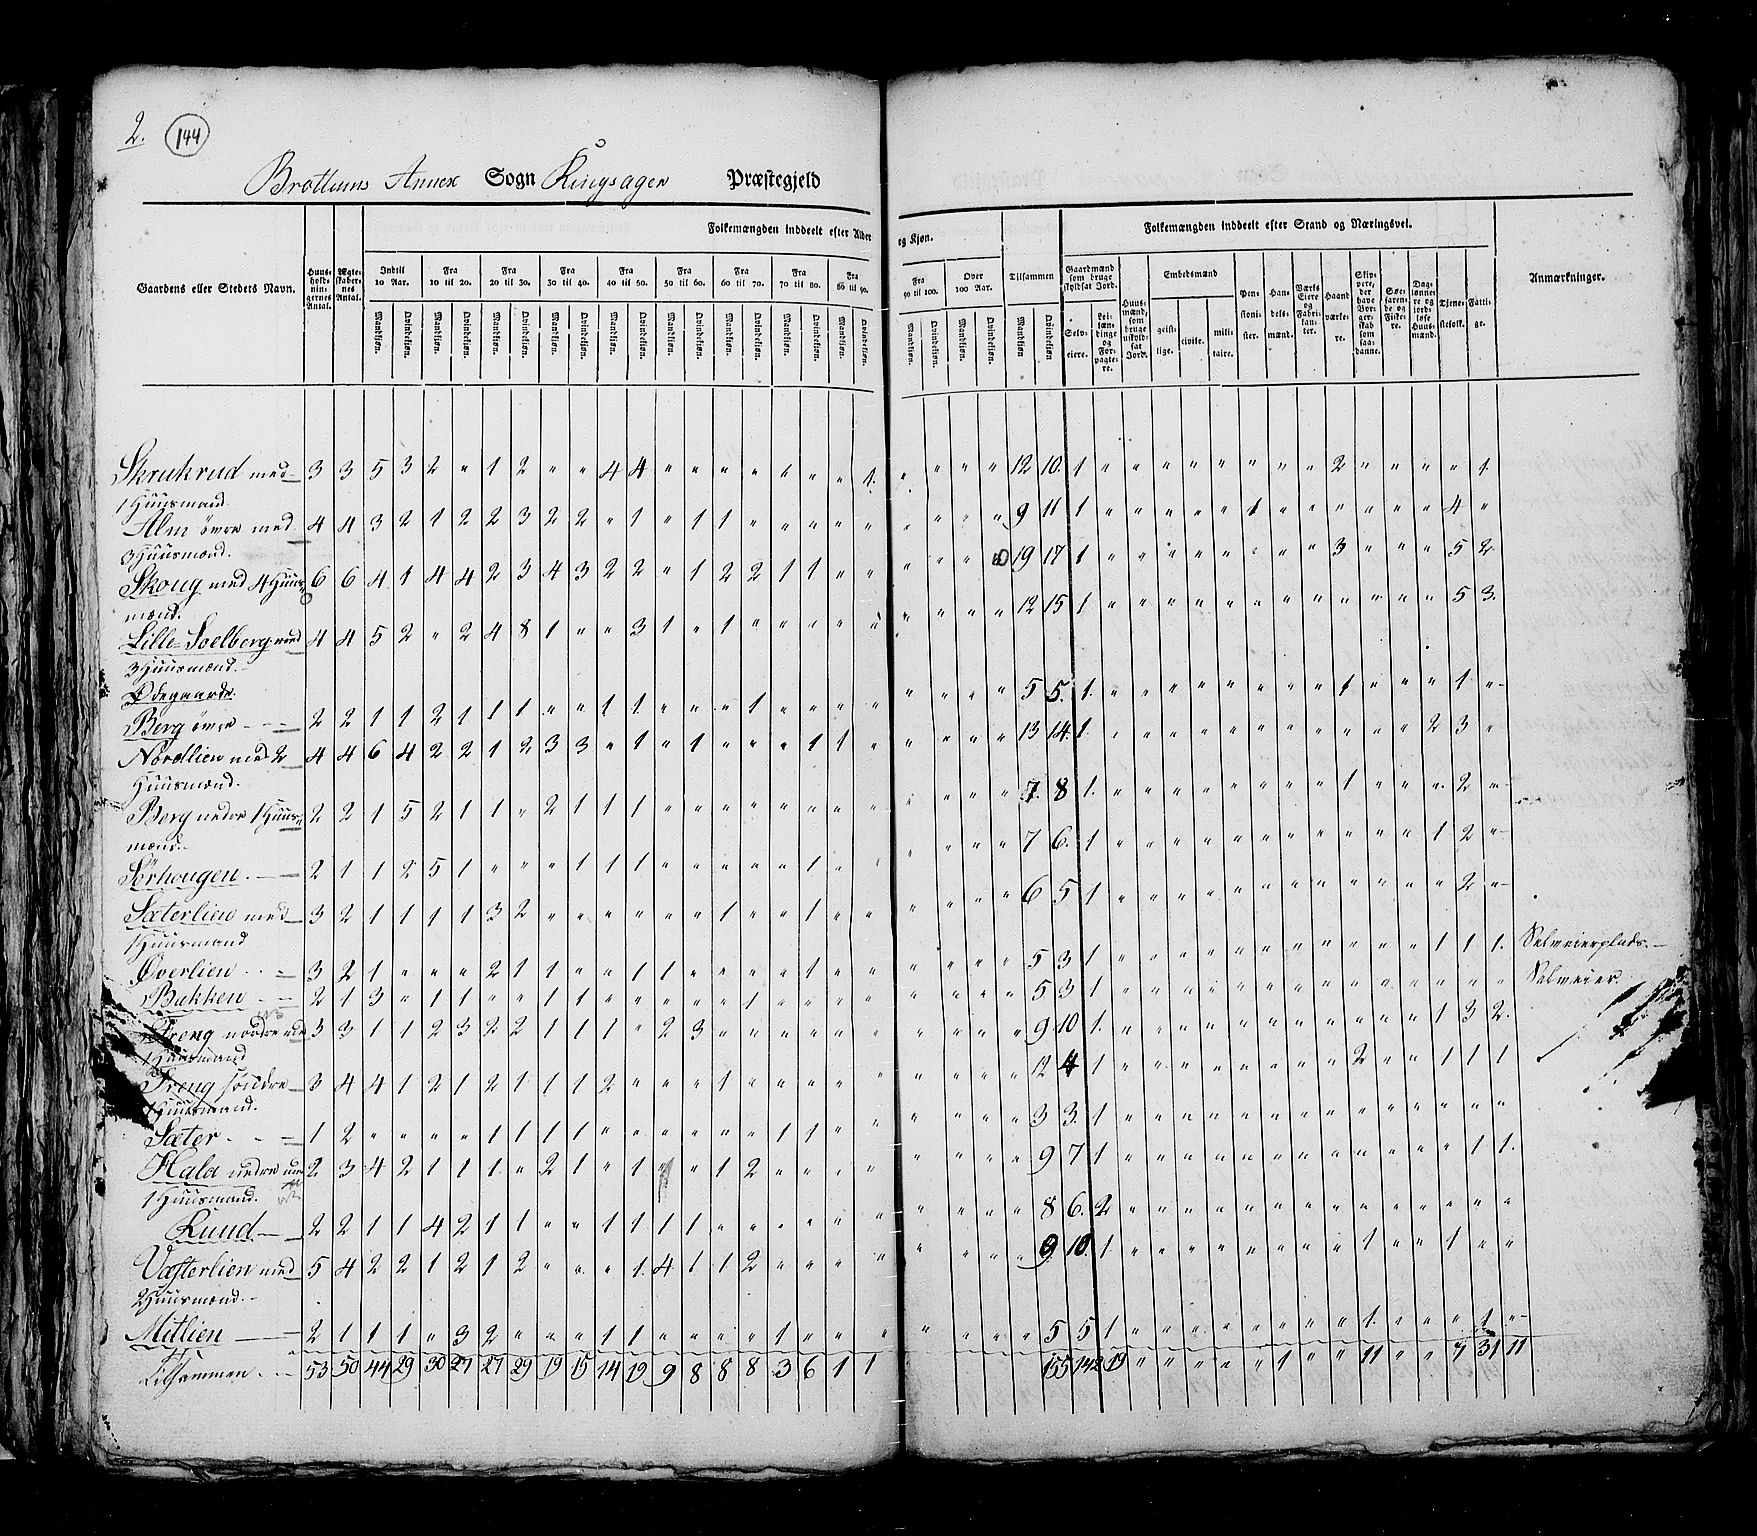 2. 144
Brottums Annex Sogn Ringsager Præstegjeld
Gaardens eller Stedets Navn.
Huus-holdnin-gernes Antal.
Ægte-skaber-nes Antal.
Folkemængden inddeelt efter Alder og Kjøn.
Indtil 10 Aar.
Fra 10 til 20.
Fra 20 til 30.
Fra 30 til 40.
Fra 40 til 50.
Fra 50 til 60.
Fra 60 til 70.
Fra 70 til 80.
Fra 80 til 90.
Fra 90 til 100.
Over 100 Aar.
Tilsammen
Mandkjøn. Qvindekjøn.
Folkemængden inddeelt efter Stand og Næringsvei.
Gaardmænd som bruge skyldsat Jord.
Selv-eiere.
Lei-læn-dinge og For-pagte-re.
Huus-mænd, som bruge uskyld-sat Jord.
Embedsmænd
geist-lige. civile. mili-taire.
Pen-sioni-ster.
Han-dels-mænd.
Værks Eiere og Fabri-kan-ter.
Haand værke-re.
Skip-pere, der have Bor-ger-skab som saa-danne.
Søe-faren-de og Fiske-re.
Dag-lønne-re og jord-løse Huus-mænd.
Tjene-stefolk.
Fatti-ge.
Anmærkninger.
Skrukrud med 3 3 5 3 2 " 1 2 " " 4 4 " " " " " " " 1. " " " " 12 10. 1 " " " " " " " " 2 " " " " 1.
1 Huusmand.
Alm övre med 4 4 3 2 1 2 2 3 2 2 " 1 " 1 1 " " " " " " " " " 9 11 1 " " " " " 1 " " " " " " 4 "
3 Huusmænd.
Skoug med 4 Huus- 6 6 4 1 4 4 2 3 4 3 2 2 " 1 2 2 1 1 " " " " " " 19 17 1 " " " " " " " " 3 " " " 5 2
mænd.
Lille-Soelberg med 4 4 5 2 " 2 4 8 1 " " 3 1 " 1 " " " " " " " " " 12 15 1 " " " " " " " " " " " " 5 3.
3 Huusmænd.
Ødegaarde.
Berg övre 2 2 1 1 2 1 1 1 " " 1 1. " " " 1 " " " " " " " " 5 5. 1. " " " " " " " " 1 " " " 1 "
Nordlien med 2 4 4 6 4 2 2 1 2 3 3 " 1 " 1 " " " 1 1 " " " " " 13 14 1. " " " " " " " " " " " 2 3 "
Huusmænd.
Berg nedre 1 Huus- 2 2 1 5 2 1 1 " 2 1 1 1 " " " " " " " " " " " " 7. 8 1. " " " " " " " " 1 " " " 2 "
mand.
Sörhougen. 2 1 1 2 5 1 " " " 1 1 1 " " " " " 1 " " " " " " 7 6. 1 " " " " " " " " " " " 1 2 "
Sæterlien med 3 2 1 1 1 1 3 2 " " " " " " 1 " " 1 " " " " " " 6 5 1 " " " " " " " " " " " " 2 "
1 Huusmand
Överlien 3 2 1 " " " 2 1 1 " " 1 1 " " " " 1 " " " " " " 5 3 1 " " " " " " " " " " " 1 1 1. Selveierplads.
Bakken 2 1 3 " 1 1 " " 1 1 " " " " " 1 " " " " " " " " 5 3 1 " " " " " " " " " " " " " " Selveier.
Treng nordre med 3 3 1 1 2 3 2 2 1 1 1 " 2 3 " " " " " " " " " " 9 10 1. " " " " " " " " " " " 1 3 2.
1 Huusmand
Treng söndre 3 4 4 1 2 1 2 1 1 1 2 " " " " 1 " " " " " " " " 12 4 1 " " " " " " " " 2 " " 1 1 1
1 Huusmand.
Sæter 1 2 " " " " 1 1 1 1 " " " " " " 1 1 " " " " " " 3 3. 1 " " " " " " " " " " " " " "
Hala nedre med 2 3 4 2 1 1 1. " 2 1 " 1 " " 1 2 " " " " " " " " 9 7 1 " " " " " " " " " " " " 1 1.
1 Huusmand.
Rund 2 2 1 1 4 2 1 1 " " 1 1 1 1 " " " " " " " " " " 8 6. 2 " " " " " " " " " " " " " "
Væsterlien med 5 4 2 2 1 2 1 2 " " " 1. 4 1 1 2 " " " " " " " " 9 10 1 " " " " " " " " 1 " " 1 " "
2 Huusmænd.
Mitlien 2 1 1 1 " 3 2 " " " 1 1 " " " " 1 " " " " " " " 5 5 1 " " " " " " " " 1. " " " 1 "
Tilsammen 53 50 44 29 30 27 27 29 19 15 14 19 9 8 8 8 3 6 1 1 155 142 19 " " " " " 1 " " 11 " " 7 31 11